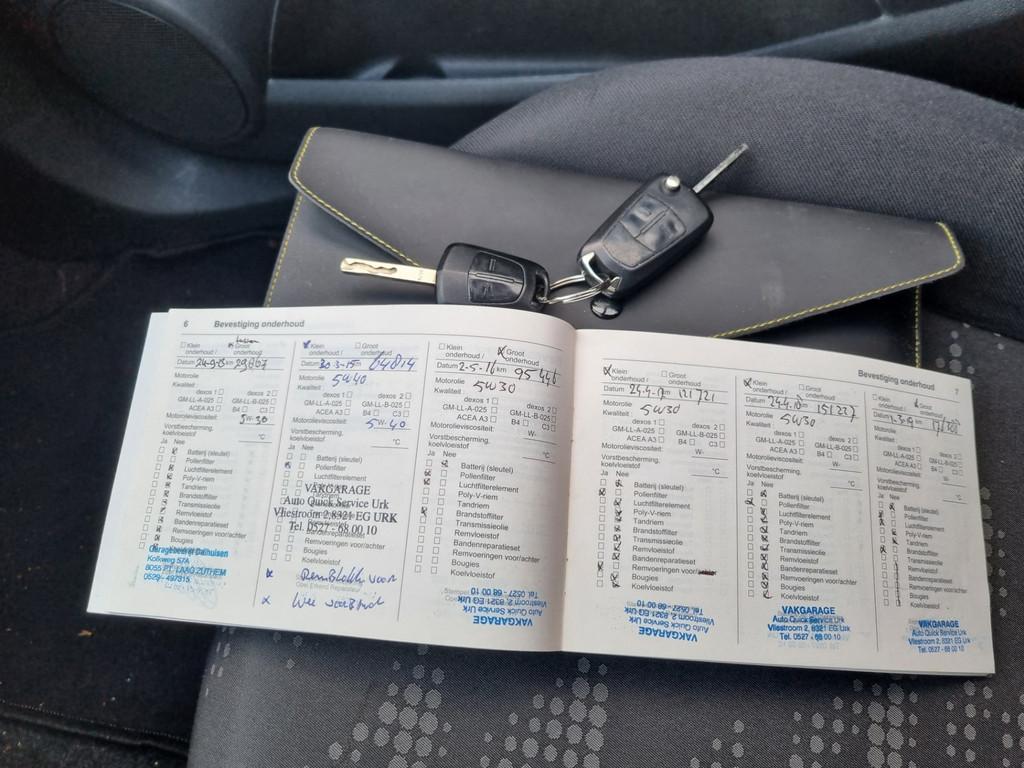 6 Bevestiging onderhoud
Klein onderhoud / Groot onderhoud
Datum 24-9-13 km 29867
Motorolie
Kwaliteit:
dexos 1 dexos 2
GM-LL-A-025 GM-LL-B-025
ACEA A3 B4 C3
Motorolieviscositeit: 5W-30
Vorstbescherming, koelvloeistof °C
Ja Nee
Batterij (sleutel)
Pollenfilter
Luchtfilterelement
Poly-V-riem
Tandriem
Brandstoffilter
Transmissieolie
Remvloeistof
Bandenreparatieset
Remvoeringen voor/achter
Garagebedrijf Dalhuisen
Kolkweg 57A
8055 PT LAAG ZUTHEM
0529-497315
Klein onderhoud / Groot onderhoud
Datum 30-3-15 km 64814
Motorolie 5W40
Kwaliteit:
dexos 1 dexos 2
GM-LL-A-025 GM-LL-B-025
ACEA A3 B4 C3
Motorolieviscositeit: 5W-40
Vorstbescherming, koelvloeistof °C
Ja Nee
Batterij (sleutel)
Pollenfilter
Luchtfilterelement
VAKGARAGE
Auto Quick Service Urk
Vliestroom 2,8321 EG URK
Tel. 0527-68 00 10
Bandenreparatieset
Remvoeringen voor/achter
Bougies
Koelvloeistof
x Remblokken voor
Klein onderhoud / Groot onderhoud
Datum 2-5-16 km 95446
Motorolie 5W30
Kwaliteit:
dexos 1 dexos 2
GM-LL-A-025 GM-LL-B-025
ACEA A3 B4 C3
Motorolieviscositeit: W-
Vorstbescherming, koelvloeistof °C
Ja Nee
Batterij (sleutel)
Pollenfilter
Luchtfilterelement
Poly-V-riem
Tandriem
Brandstoffilter
Transmissieolie
Remvloeistof
Bandenreparatieset
Remvoeringen voor/achter
Bougies
Koelvloeistof
VAKGARAGE
Auto Quick Service Urk
Vliestroom 2, 8321 EG Urk
Tel. 0527 - 68 00 10
Bevestiging onderhoud 7
Klein onderhoud / Groot onderhoud
Datum 24-4-17 km 121721
Motorolie 5W30
Kwaliteit:
dexos 1 dexos 2
GM-LL-A-025 GM-LL-B-025
ACEA A3 B4 C3
Motorolieviscositeit: W-
Vorstbescherming, koelvloeistof °C
Ja Nee
Batterij (sleutel)
Pollenfilter
Luchtfilterelement
Poly-V-riem
Tandriem
Brandstoffilter
Transmissieolie
Remvloeistof
Bandenreparatieset
Remvoeringen voor/achter
Bougies
Koelvloeistof
VAKGARAGE
Auto Quick Service Urk
Vliestroom 2, 8321 EG Urk
Tel. 0527 - 68 00 10
Klein onderhoud / Groot onderhoud
Datum 24-4-18 km 151227
Motorolie 5W30
Kwaliteit:
dexos 1 dexos 2
GM-LL-A-025 GM-LL-B-025
ACEA A3 B4 C3
Motorolieviscositeit: W-
Vorstbescherming, koelvloeistof °C
Ja Nee
Batterij (sleutel)
Pollenfilter
Luchtfilterelement
Poly-V-riem
Tandriem
Brandstoffilter
Transmissieolie
Remvloeistof
Bandenreparatieset
Remvoeringen voor/achter
Bougies
Koelvloeistof
VAKGARAGE
Auto Quick Service Urk
Vliestroom 2, 8321 EG Urk
Tel. 0527 - 68 00 10
Klein onderhoud / Groot onderhoud
Datum km
Motorolie
Kwaliteit:
dexos 1 dexos 2
GM-LL-A-025 GM-LL-B-025
ACEA A3 B4 C3
Motorolieviscositeit: W-
Vorstbescherming, koelvloeistof °C
Ja Nee
Batterij (sleutel)
Pollenfilter
Luchtfilterelement
Poly-V-riem
Tandriem
Brandstoffilter
Transmissieolie
Remvloeistof
Bandenreparatieset
Remvoeringen voor/achter
Bougies
Koelvloeistof
VAKGARAGE
Auto Quick Service Urk
Vliestroom 2, 8321 EG Urk
Tel. 0527 - 68 00 10